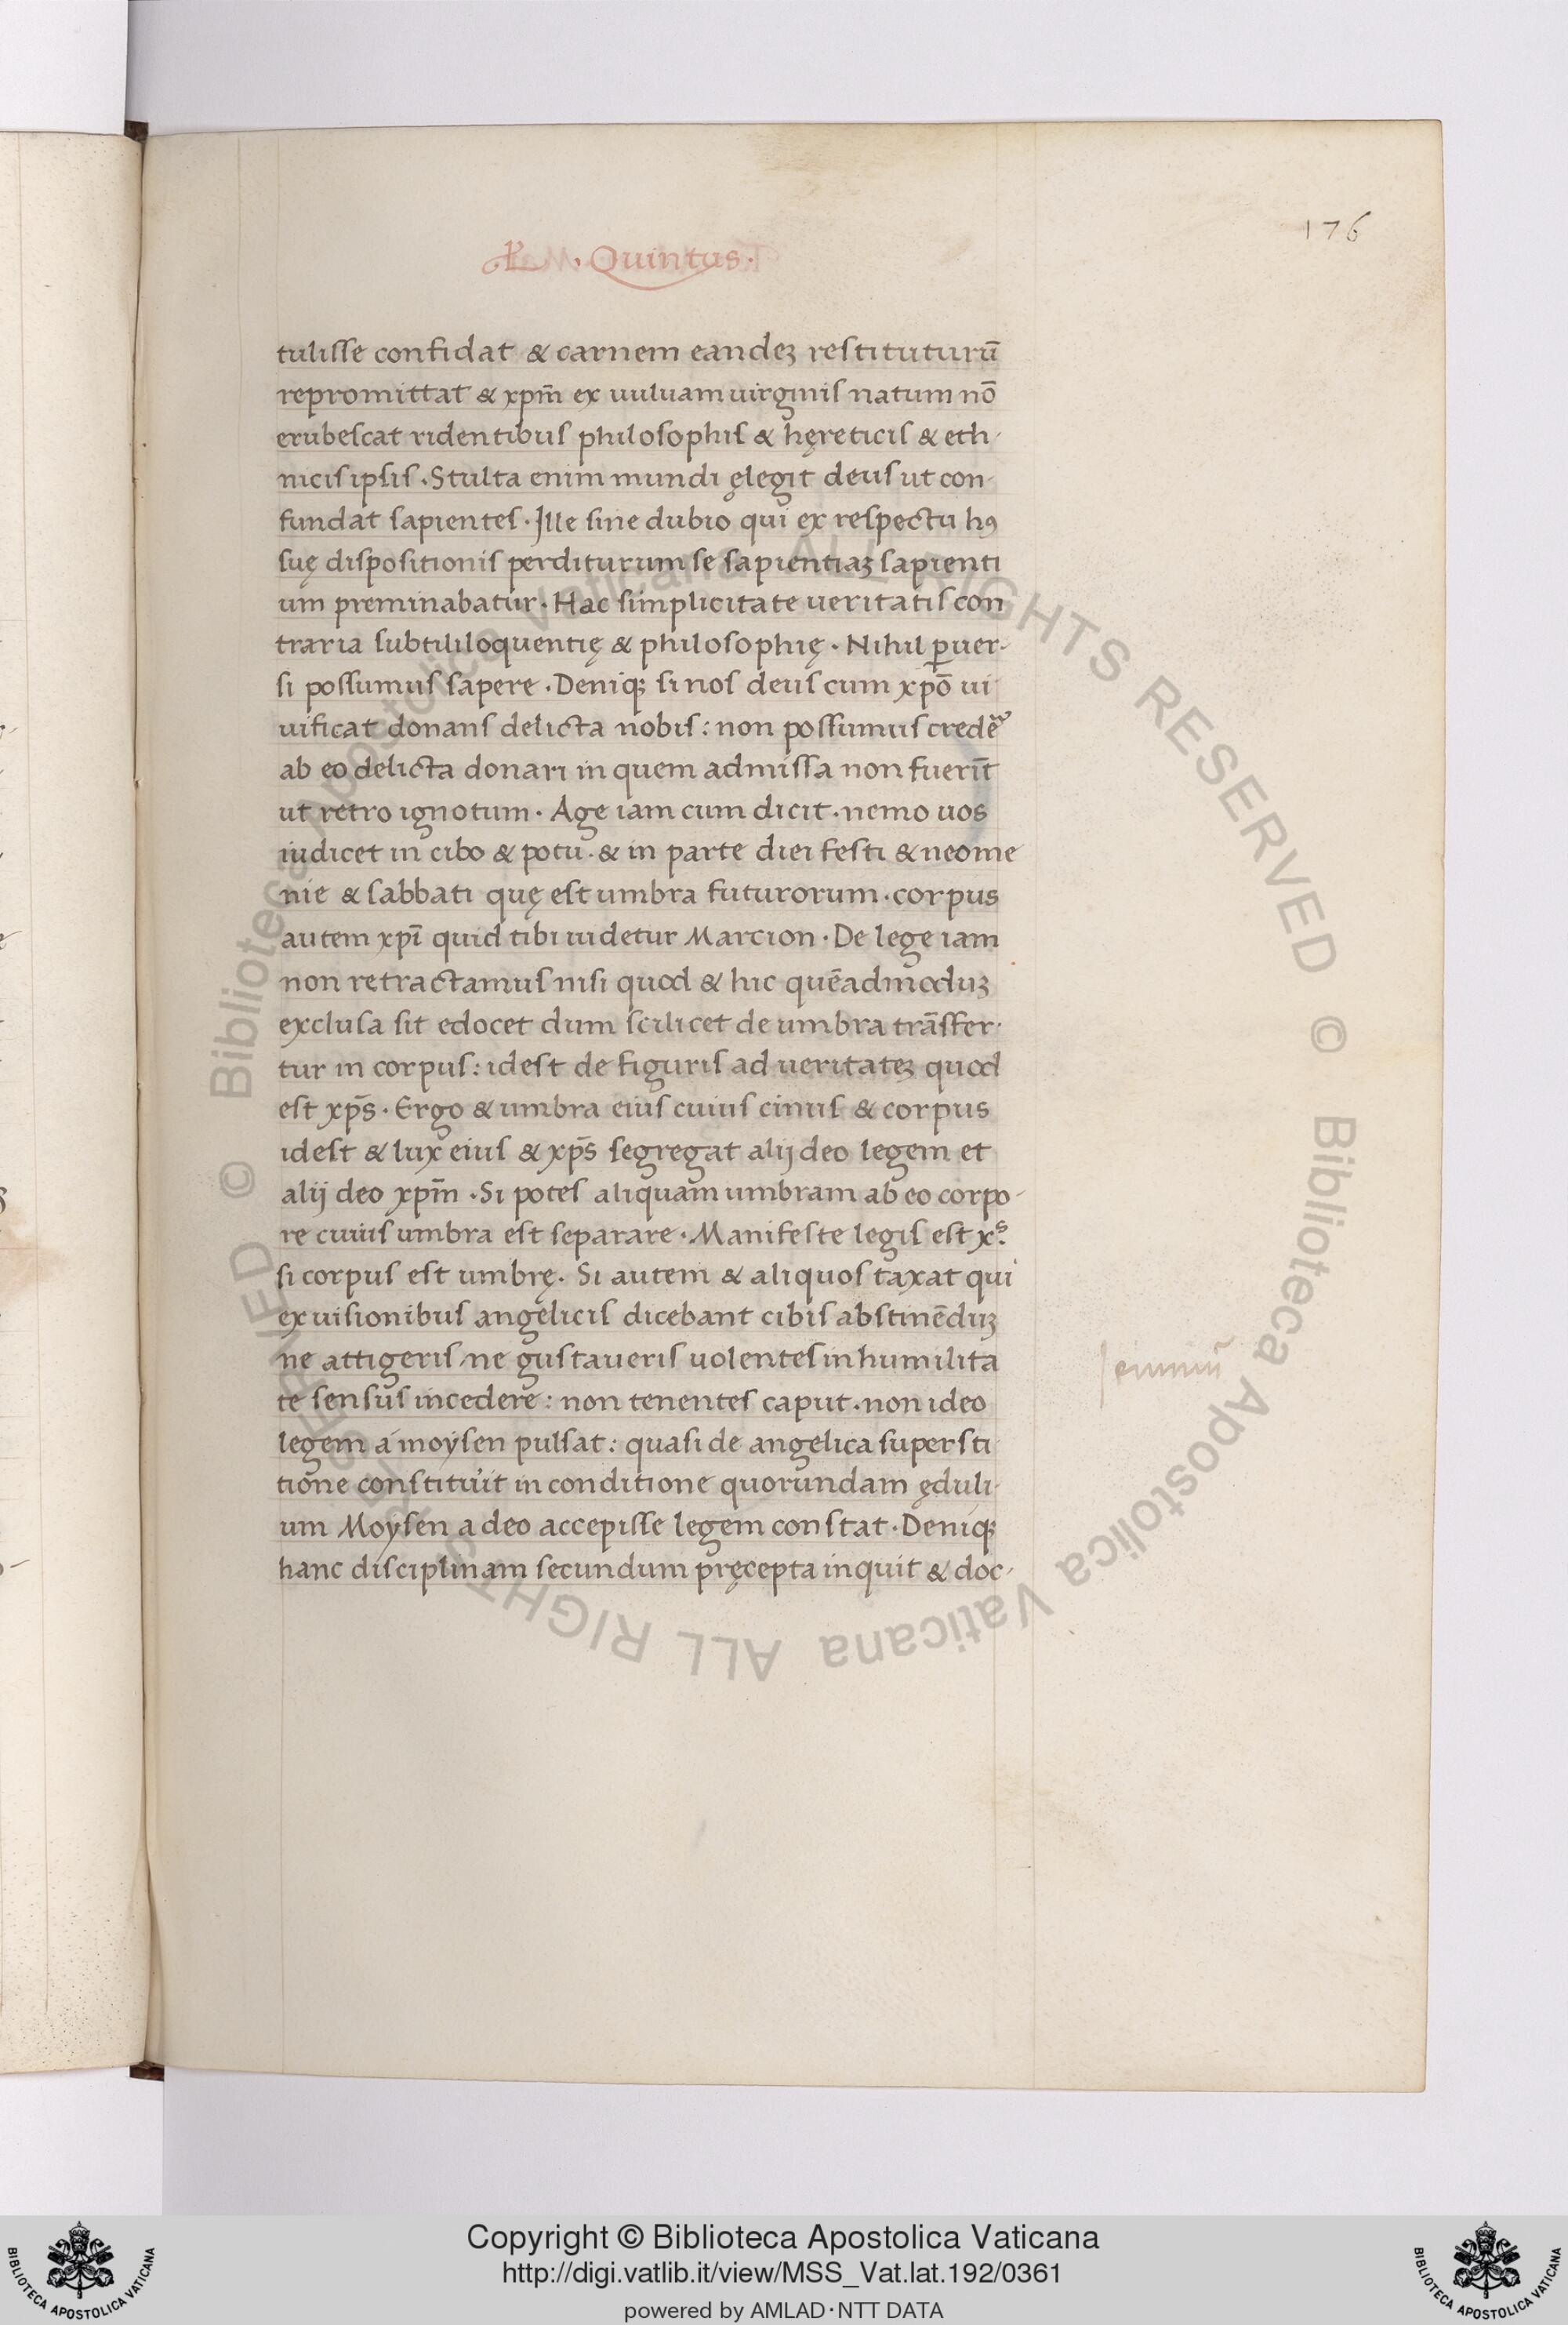 176
L. Quintus.
tulisse confidat & carnem eandeꝫ restituturū
repromittat & xpm̄ ex uuluam uirginis natum nō
erubescat ridentibus philosophis & hęreticis & eth-
nicis ipsis. Stulta enim mundi ęlegit deus ut con-
fundat sapientes. Ille sine dubio qui ex respectu hꝯ
suę dispositionis perditurum se sapientiaꝫ sapienti
um preminabatur. Hac simplicitate ueritatis con
traria subtililoquentię & philosophię. Nihil ꝑuer-
si possumus sapere. Deniqꝫ si nos deus cum xpō ui
uificat donans delicta nobis: non possumus credeꝝ
ab eo delicta donari in quem admissa non fuerīt
ut retro ignotum. Age iam cum dicit. nemo uos
iudicet in cibo & potu. & in parte diei festi & neome
nie & sabbati quę est umbra futurorum. corpus
autem xpī quid tibi uidetur Marcion. De lege iam
non retractamus nisi quod & hic quēadmoduꝫ
exclusa sit edocet dum scilicet de umbra trāsfer-
tur in corpus: idest de figuris ad ueritateꝫ quod
est xp̄s. Ergo & umbra eius cuius cinus & corpus
idest & lux eius & xp̄s segregat alij deo legem et
alij deo xpm̄. Si potes aliquam umbram ab eo corpo-
re cuius umbra est separare. Manifeste legis est xˢ.
si corpus est umbrę. Si autem & aliquos taxat qui
ex uisionibus angelicis dicebant cibis abstinēduꝫ
ne attigeris / ne gustaueris uolentes in humilita
te sensus incedere: non tenentes caput. non ideo
legem a moysen pulsat: quasi de angelica supersti
tione constituit in conditione quorundam ęduli-
um Moysen a deo accepisse legem constat. Deniqꝫ
hanc disciplinam secundum pręcepta inquit & doc-
Ieiuniū
© Biblioteca Apostolica Vaticana ALL RIGHTS RESERVED © Biblioteca Apostolica Vaticana ALL RIGHTS RESERVED
Copyright © Biblioteca Apostolica Vaticana
http://digi.vatlib.it/view/MSS_Vat.lat.192/0361
powered by AMLAD·NTT DATA
BIBLIOTECA APOSTOLICA VATICANA
BIBLIOTECA APOSTOLICA VATICANA